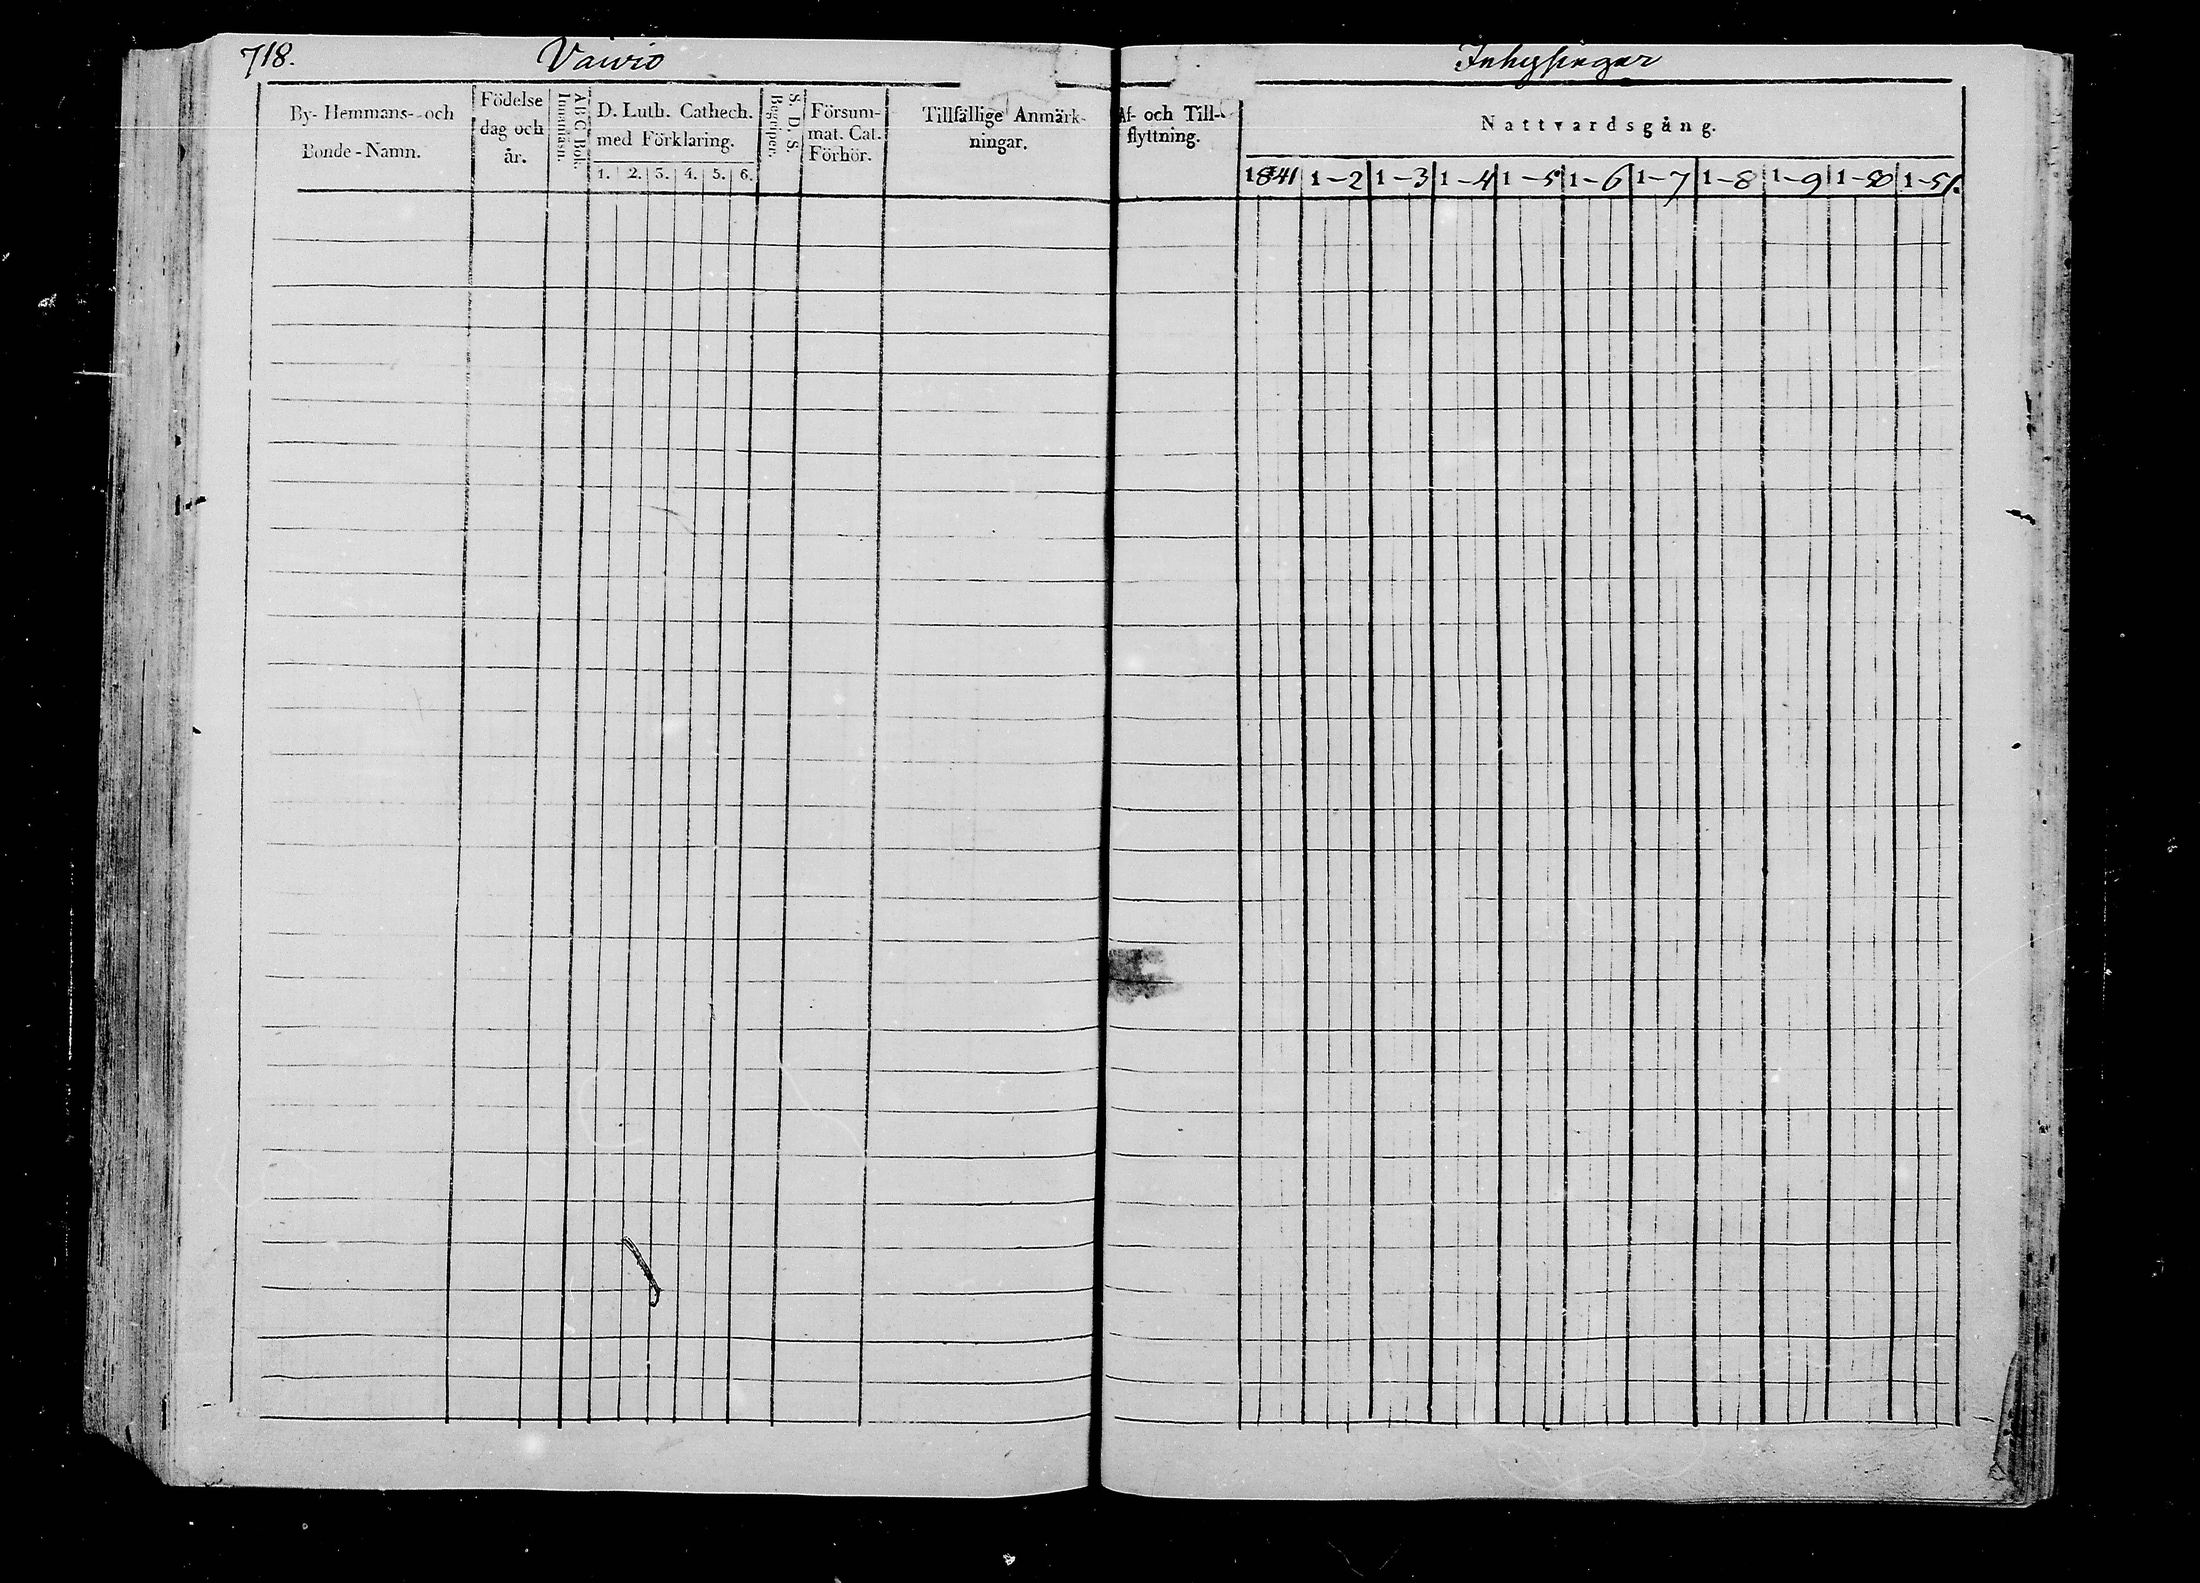 718. Vaivio Inhysingar
By- Hemmans- och Bonde-Namn.
Födelse dag och år.
A B C Bok. Innenläsn.
D. Luth. Cathech. med Förklaring.
1. 2. 3. 4. 5. 6.
S. D. S. Begriper.
Försummat. Cat. Förhör.
Tillfällige Anmärkningar.
Af- och Till-flyttning.
Nattvardsgång.
1841 1-2 1-3 1-4 1-5 1-6 1-7 1-8 1-9 1-50 1-51.